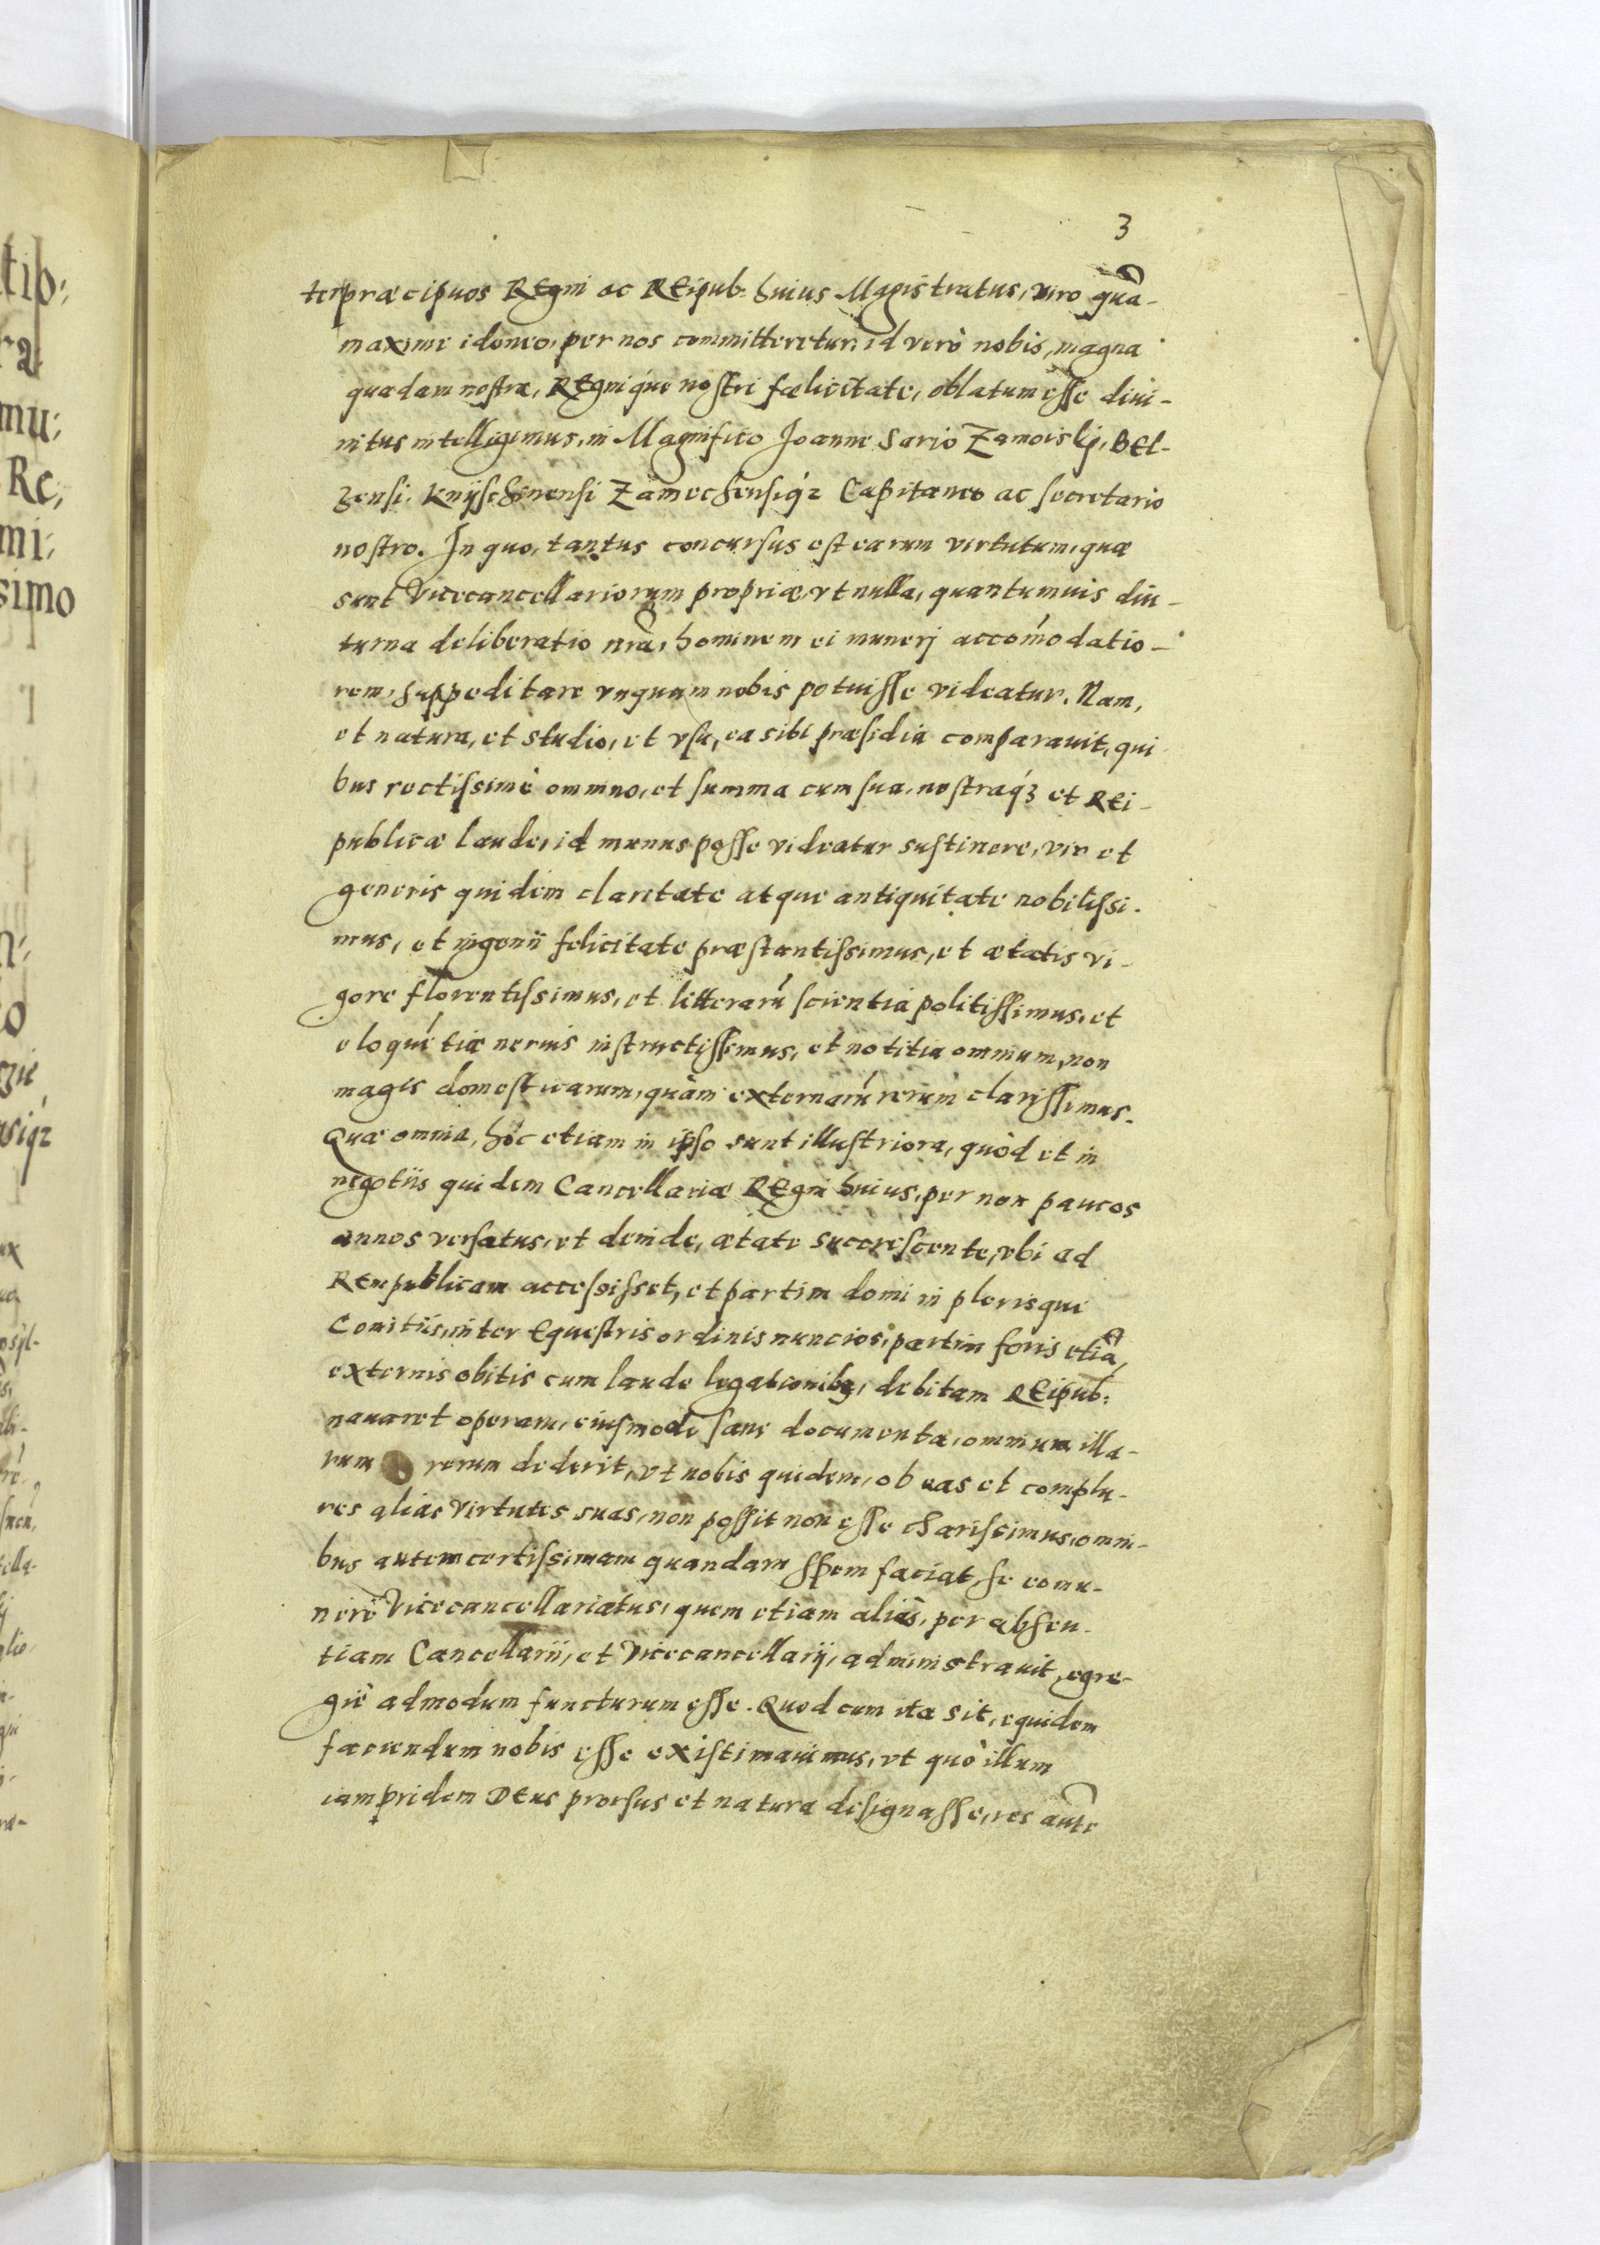 3
ter præcipuos REgni ac REipub. huius Magistratus, viro quā-
maxime idoneo, per nos committeretur, id verò nobis, magna
quadam nostra, REgnique nostri fælicitate, oblatum esse diui-
nitus intelligimus, in Magnifico Joanne Sario Zamoiskj, BEl-
zensi, Knijschinensi Zamechensiqʒ Capitaneo ac secretario
nostro. In quo, tantus concursus est earum virtutum, quæ
sunt Vicecancellariorum propriæ, vt nulla, quantumuis diu-
turna deliberatio nrã, hominem ei munerj accom̃odatio-
rem, suppeditare vnquam nobis potuisse videatur. Nam,
et natura, et studio, et vsu, ea sibi præsidia comparauit, qui
bus rectissimè omnino, et summa cum sua, nostraqʒ et REi-
publicæ laude, id munus posse videatur sustinere, vir et
generis quidem claritate atque antiquitate nobilissi-
mus, et ingenii felicitate præstantissimus, et ætatis vi-
gore florentissimus, et litterarū scientia politissimus, et
eloquētiæ neruis instructissimus, et notitia omnium, non
magis domesticarum, quàm externarū rerum clarissimus.
Quæ omnia, hòc etiam in ipso sunt illustriora, quòd et in
negotiis quidem Cancellariæ REgni huius, per non paucos
annos versatus, et deinde, ætate succrescente, vbi ad
REmpublicam accessisset, et partim domi in plerisque
Comitiis, inter Equestris ordinis nuncios, partim foris etiã,
externis obitis cum laude legationibqʒ, debitam REipub:
nauaret operam, eiusmodi sane documenta, omnium illa-
rum rerum dederit, vt nobis quidem, ob eas et complu-
res alias virtutes suas, non possit non esse charissimus, omni-
bus autem certissimam quandam spem faciat, se eo mu-
nere Vicecancellariatus, quem etiam aliàs, per absen-
tiam Cancellarii, et Vicecancellarij, administrauit, egre-
giè admodum functurum esse. Quod cum ita sit, equidem
faciendum nobis esse existimauimus, vt quò illum
iampridem DEus prorsus et natura designasse, res autē